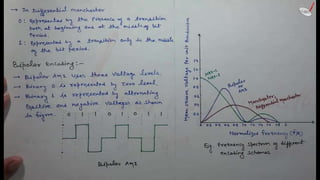 → In Differential manchester
0: Represented by the Presence of a transition
both at beginning and at the middle of bit
Period.
1: Represented by a transition only in the middle
of the bit period.
Bipolar Encoding:-
→ Bipolar AMI uses three voltage levels.
→ Binary 0 is represented by zero level.
→ Binary 1 is represented by alternating
Positive and negative voltages as shown
in figure.
0 1 0
Bipolar AMI
Mean square voltage per unit bandwidth
Bipolar
or
AMI
Manchester,
Differential manchester
Normalize frequency (f/R)
Fig Frequency Spectrum of different
encoding schemes